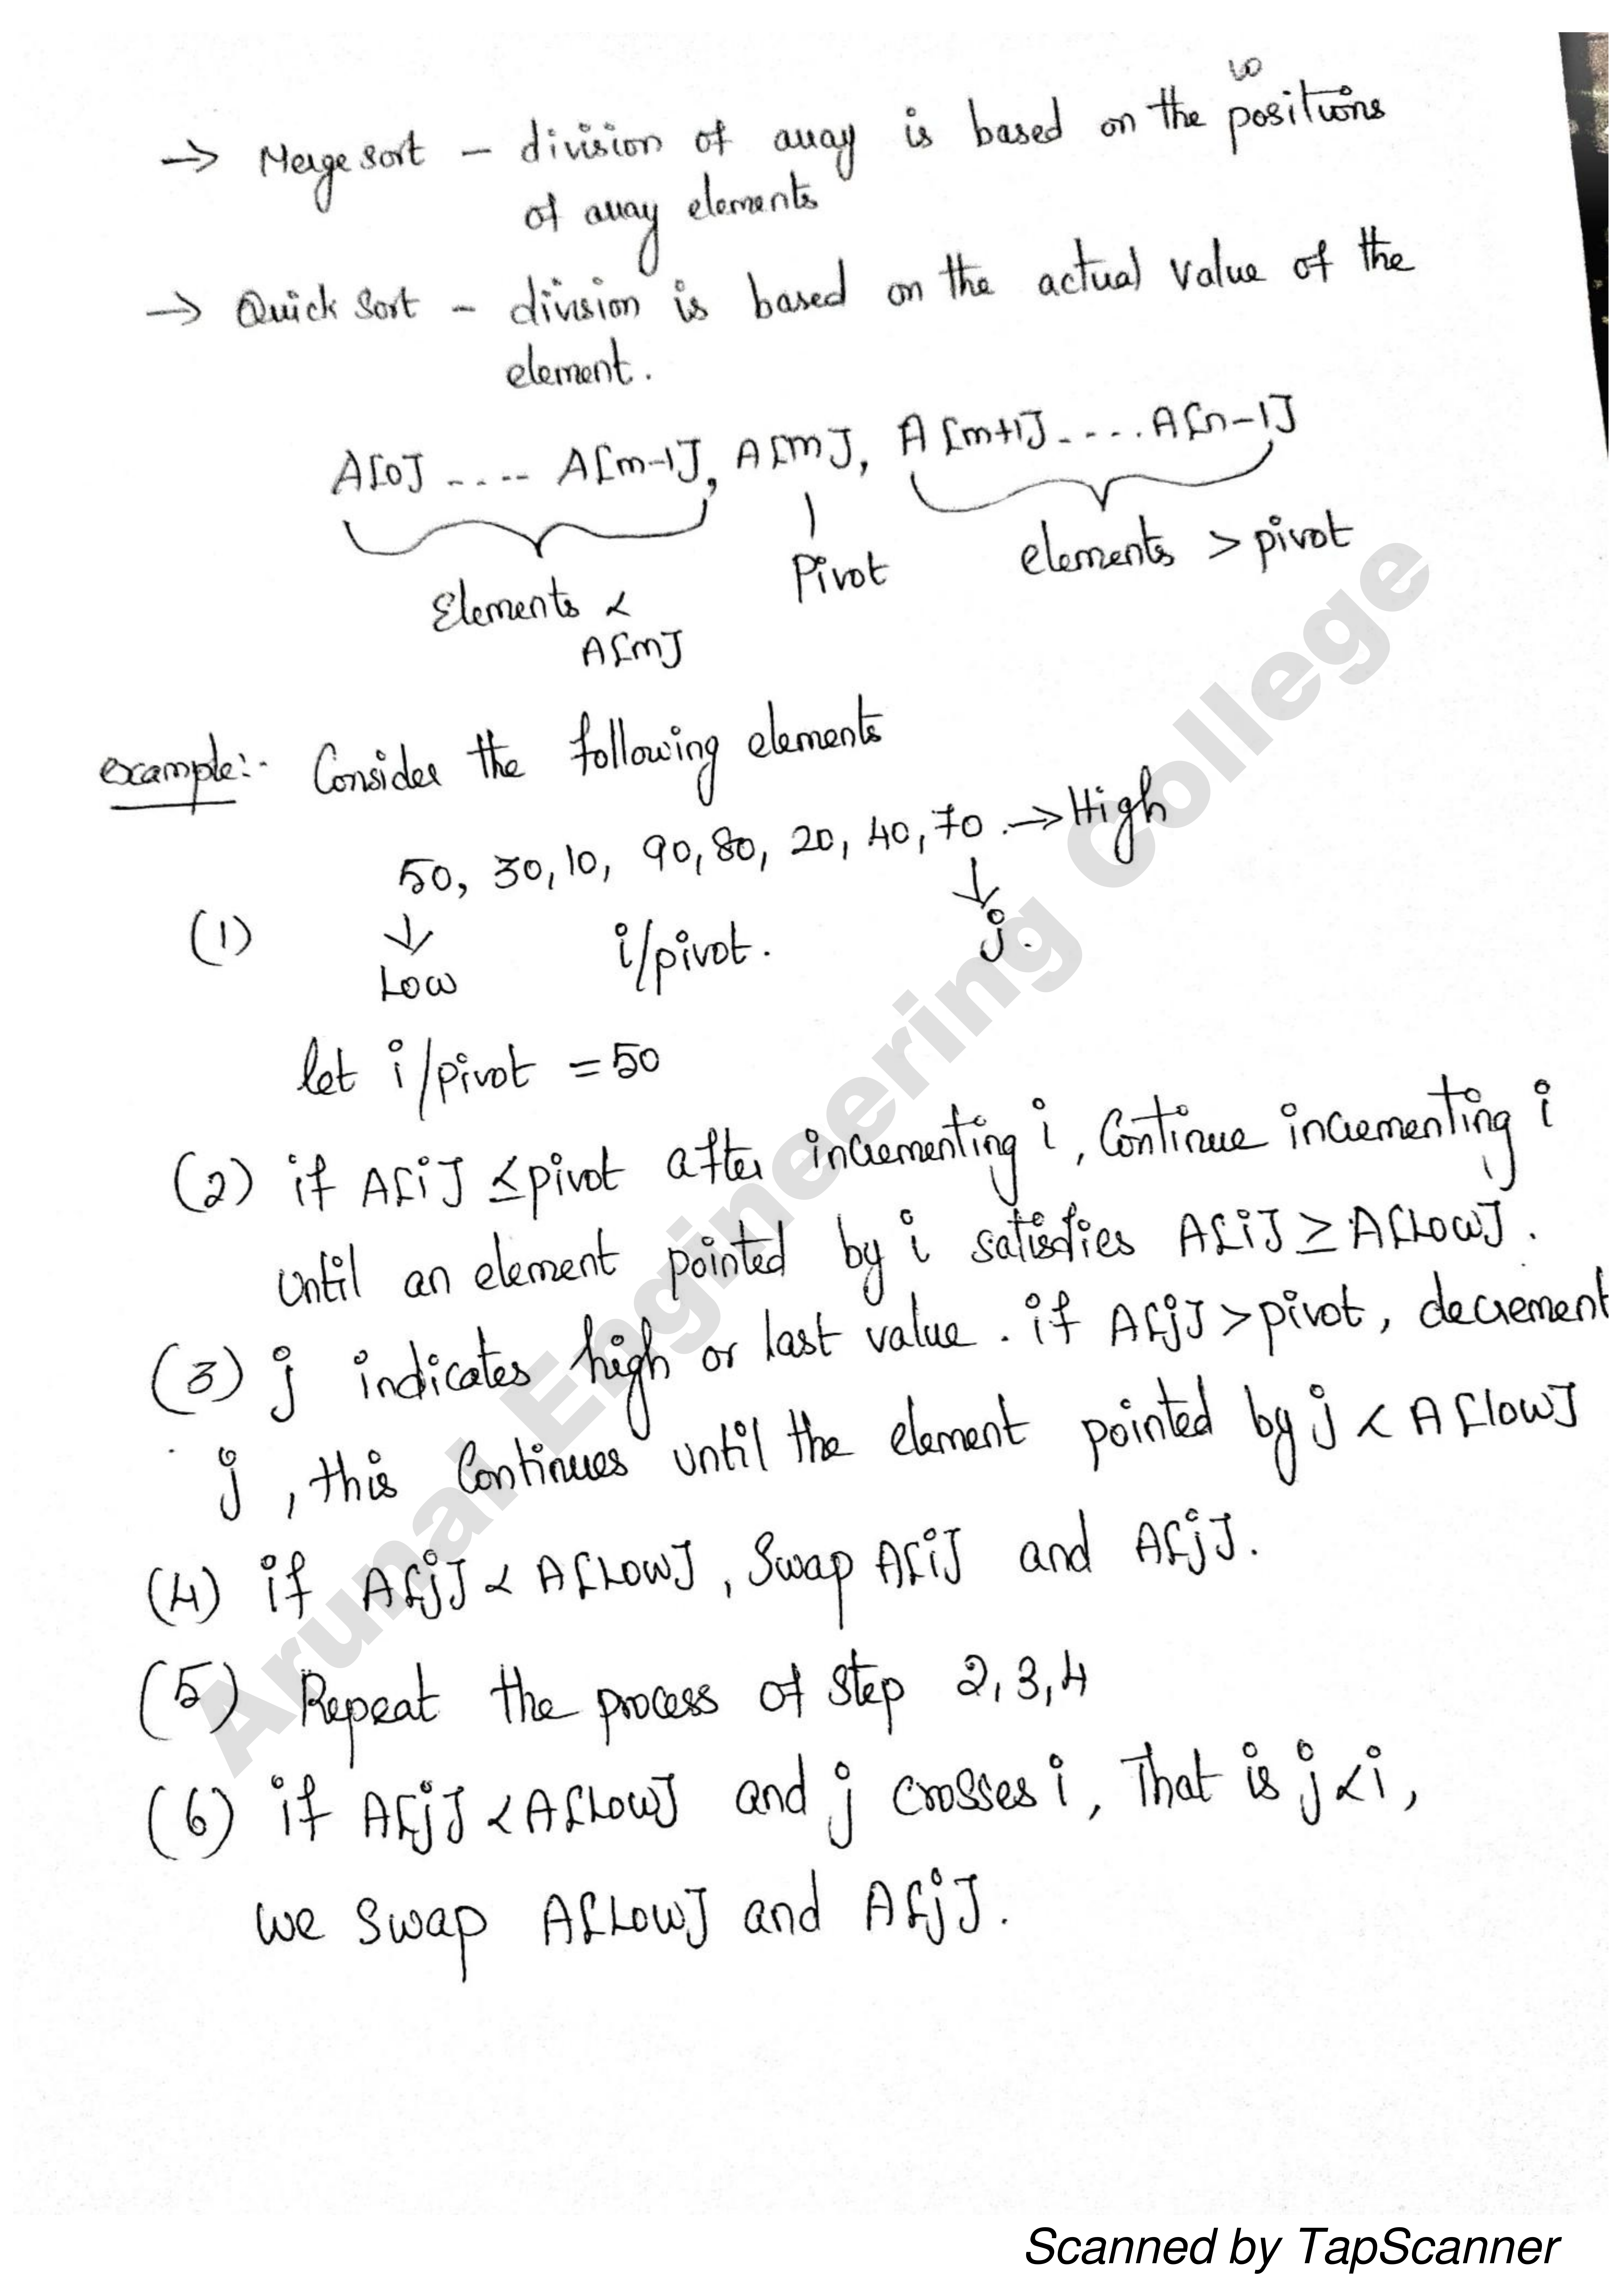 10
→ Merge sort – division of array is based on the positions
of array elements
→ Quick Sort – division is based on the actual value of the
element.
A[0] .... A[m-1], A[m], A[m+1] .... A[n-1]
Elements < Pivot elements > pivot
A[m]
example:- Consider the following elements
50, 30, 10, 90, 80, 20, 40, 70 → High
(1) ↓ i/pivot. ↓ j.
Low
let i/pivot = 50
(2) if A[i] ≤ pivot after incrementing i, Continue incrementing i
until an element pointed by i satisfies A[i] ≥ A[Low].
(3) j indicates high or last value. if A[j] > pivot, decrement
j, this Continues until the element pointed by j < A[low]
(4) if A[j] < A[Low], Swap A[i] and A[j].
(5) Repeat the process of step 2, 3, 4
(6) if A[j] < A[Low] and j crosses i, That is j < i,
we swap A[Low] and A[j].
Arunai Engineering College
Scanned by TapScanner